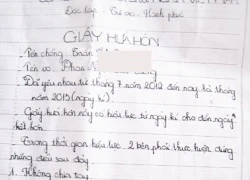 Độc lập - Tự do - Hạnh phúc
GIẤY HỨA HÔN
Tên chồng: Trần
Tên vợ: Phan
- Đã yêu nhau từ tháng 7 năm 2012 đến nay là tháng
năm 2015 (ngày kí)
- Giấy hứa hôn này có hiệu lực từ ngày kí cho đến ngày
kết hôn.
- Trong thời gian hiệu lực, 2 bên phải thực hiện đúng
những điều sau đây
1. Không chia tay